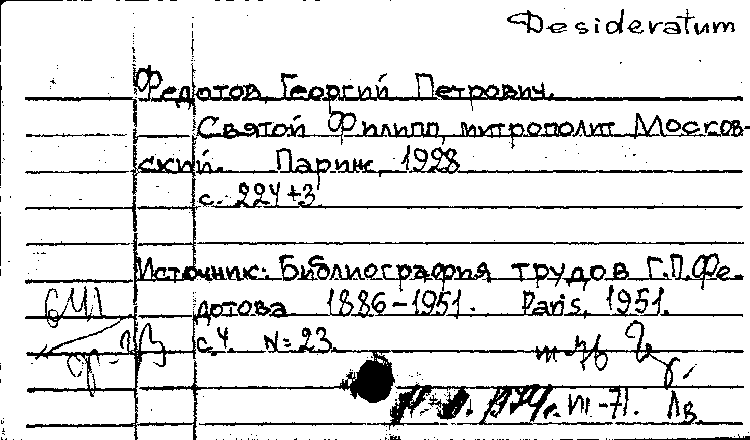 Desideratum
Федотов, Георгий Петрович.
Святой Филипп, митрополит Москов-
ский. Париж, 1928
с. 224+3
Источник: Библиография трудов Г.П.Фе-
дотова 1886-1951. Paris, 1951.
с.4. N=23.
VII-71. Лв.